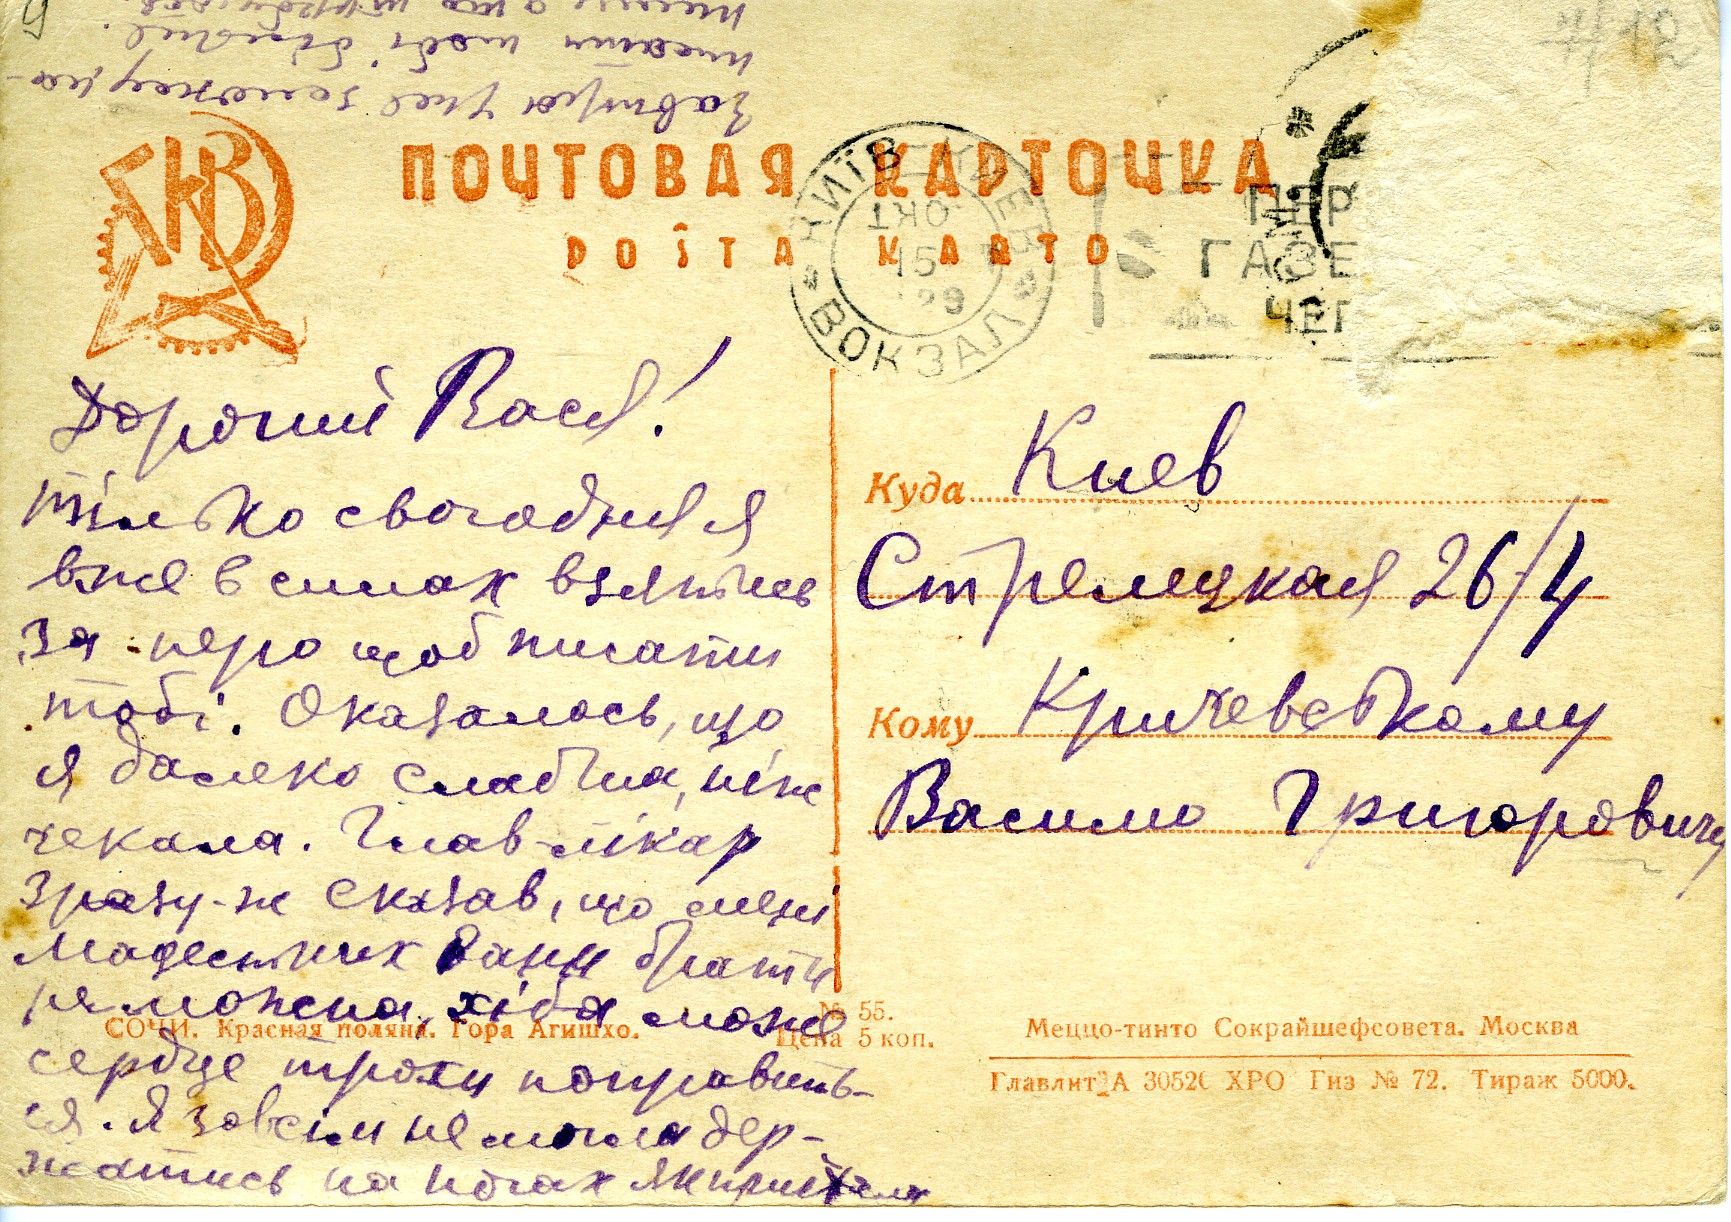 9
Завтра уже зможу на-
писати тобі більше.
ПОЧТОВАЯ КАРТОЧКА
POŜTA KARTO
КИЇВ КИЕВ
ВОКЗАЛ
15
29
ПЕР
ГАЗЕ
ЧЕР
Дорогий Вася!
тілько свогодня я
вже в силах взятись
за перо щоб писати
тобі. Оказалось, що
я далеко слабша, ніж
чекала. Глав-лікар
зразу-ж сказав, що мені
мацестних ванн брати
не можна, хіба може
сердце трохи поправить-
ся. Я зовсім не могла дер-
жатись на ногах як приїхала
Куда Киев
Стрелецкая 26/4
Кому Кричевському
Василю Григоровичу
СОЧИ. Красная поляна. Гора Агишхо.
№ 55.
Цена 5 коп.
Меццо-тинто Сокрайшефсовета. Москва
Главлит А 30520 ХРО Гиз № 72. Тираж 5000.